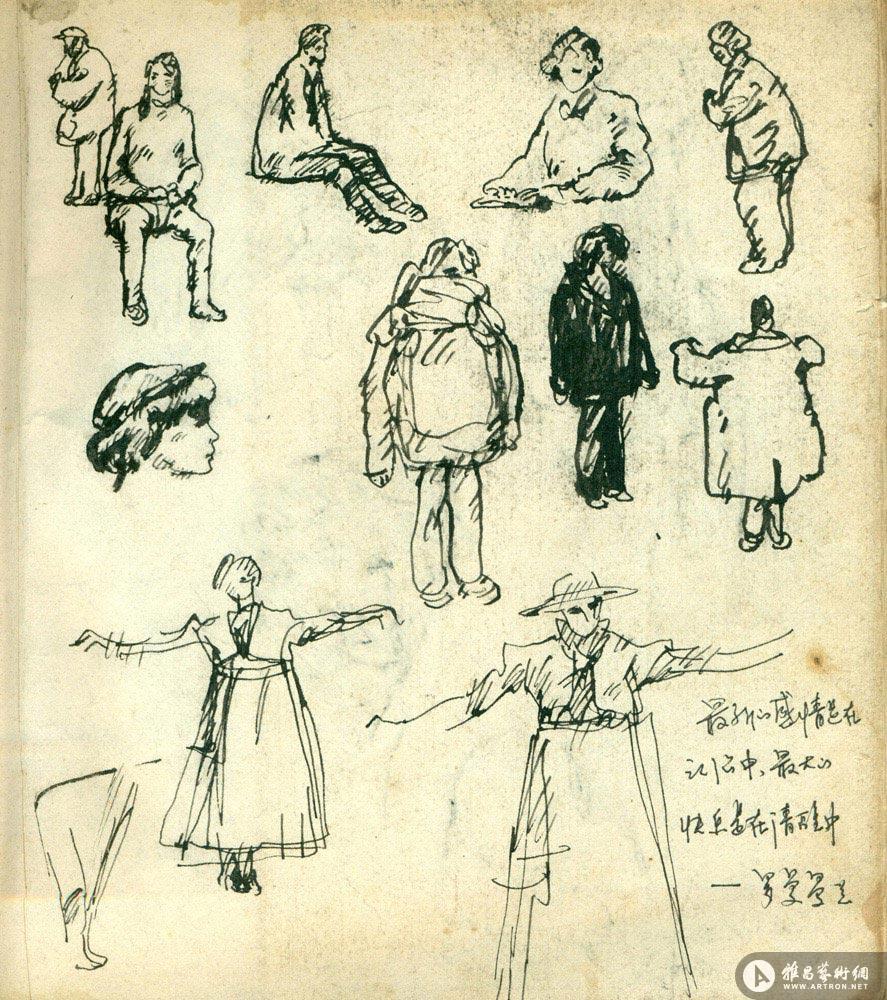 最好的感情是在
记忆中、最大的
快乐是在清醒中
— 罗曼罗兰
雅昌藝術網
WWW.ARTRON.NET